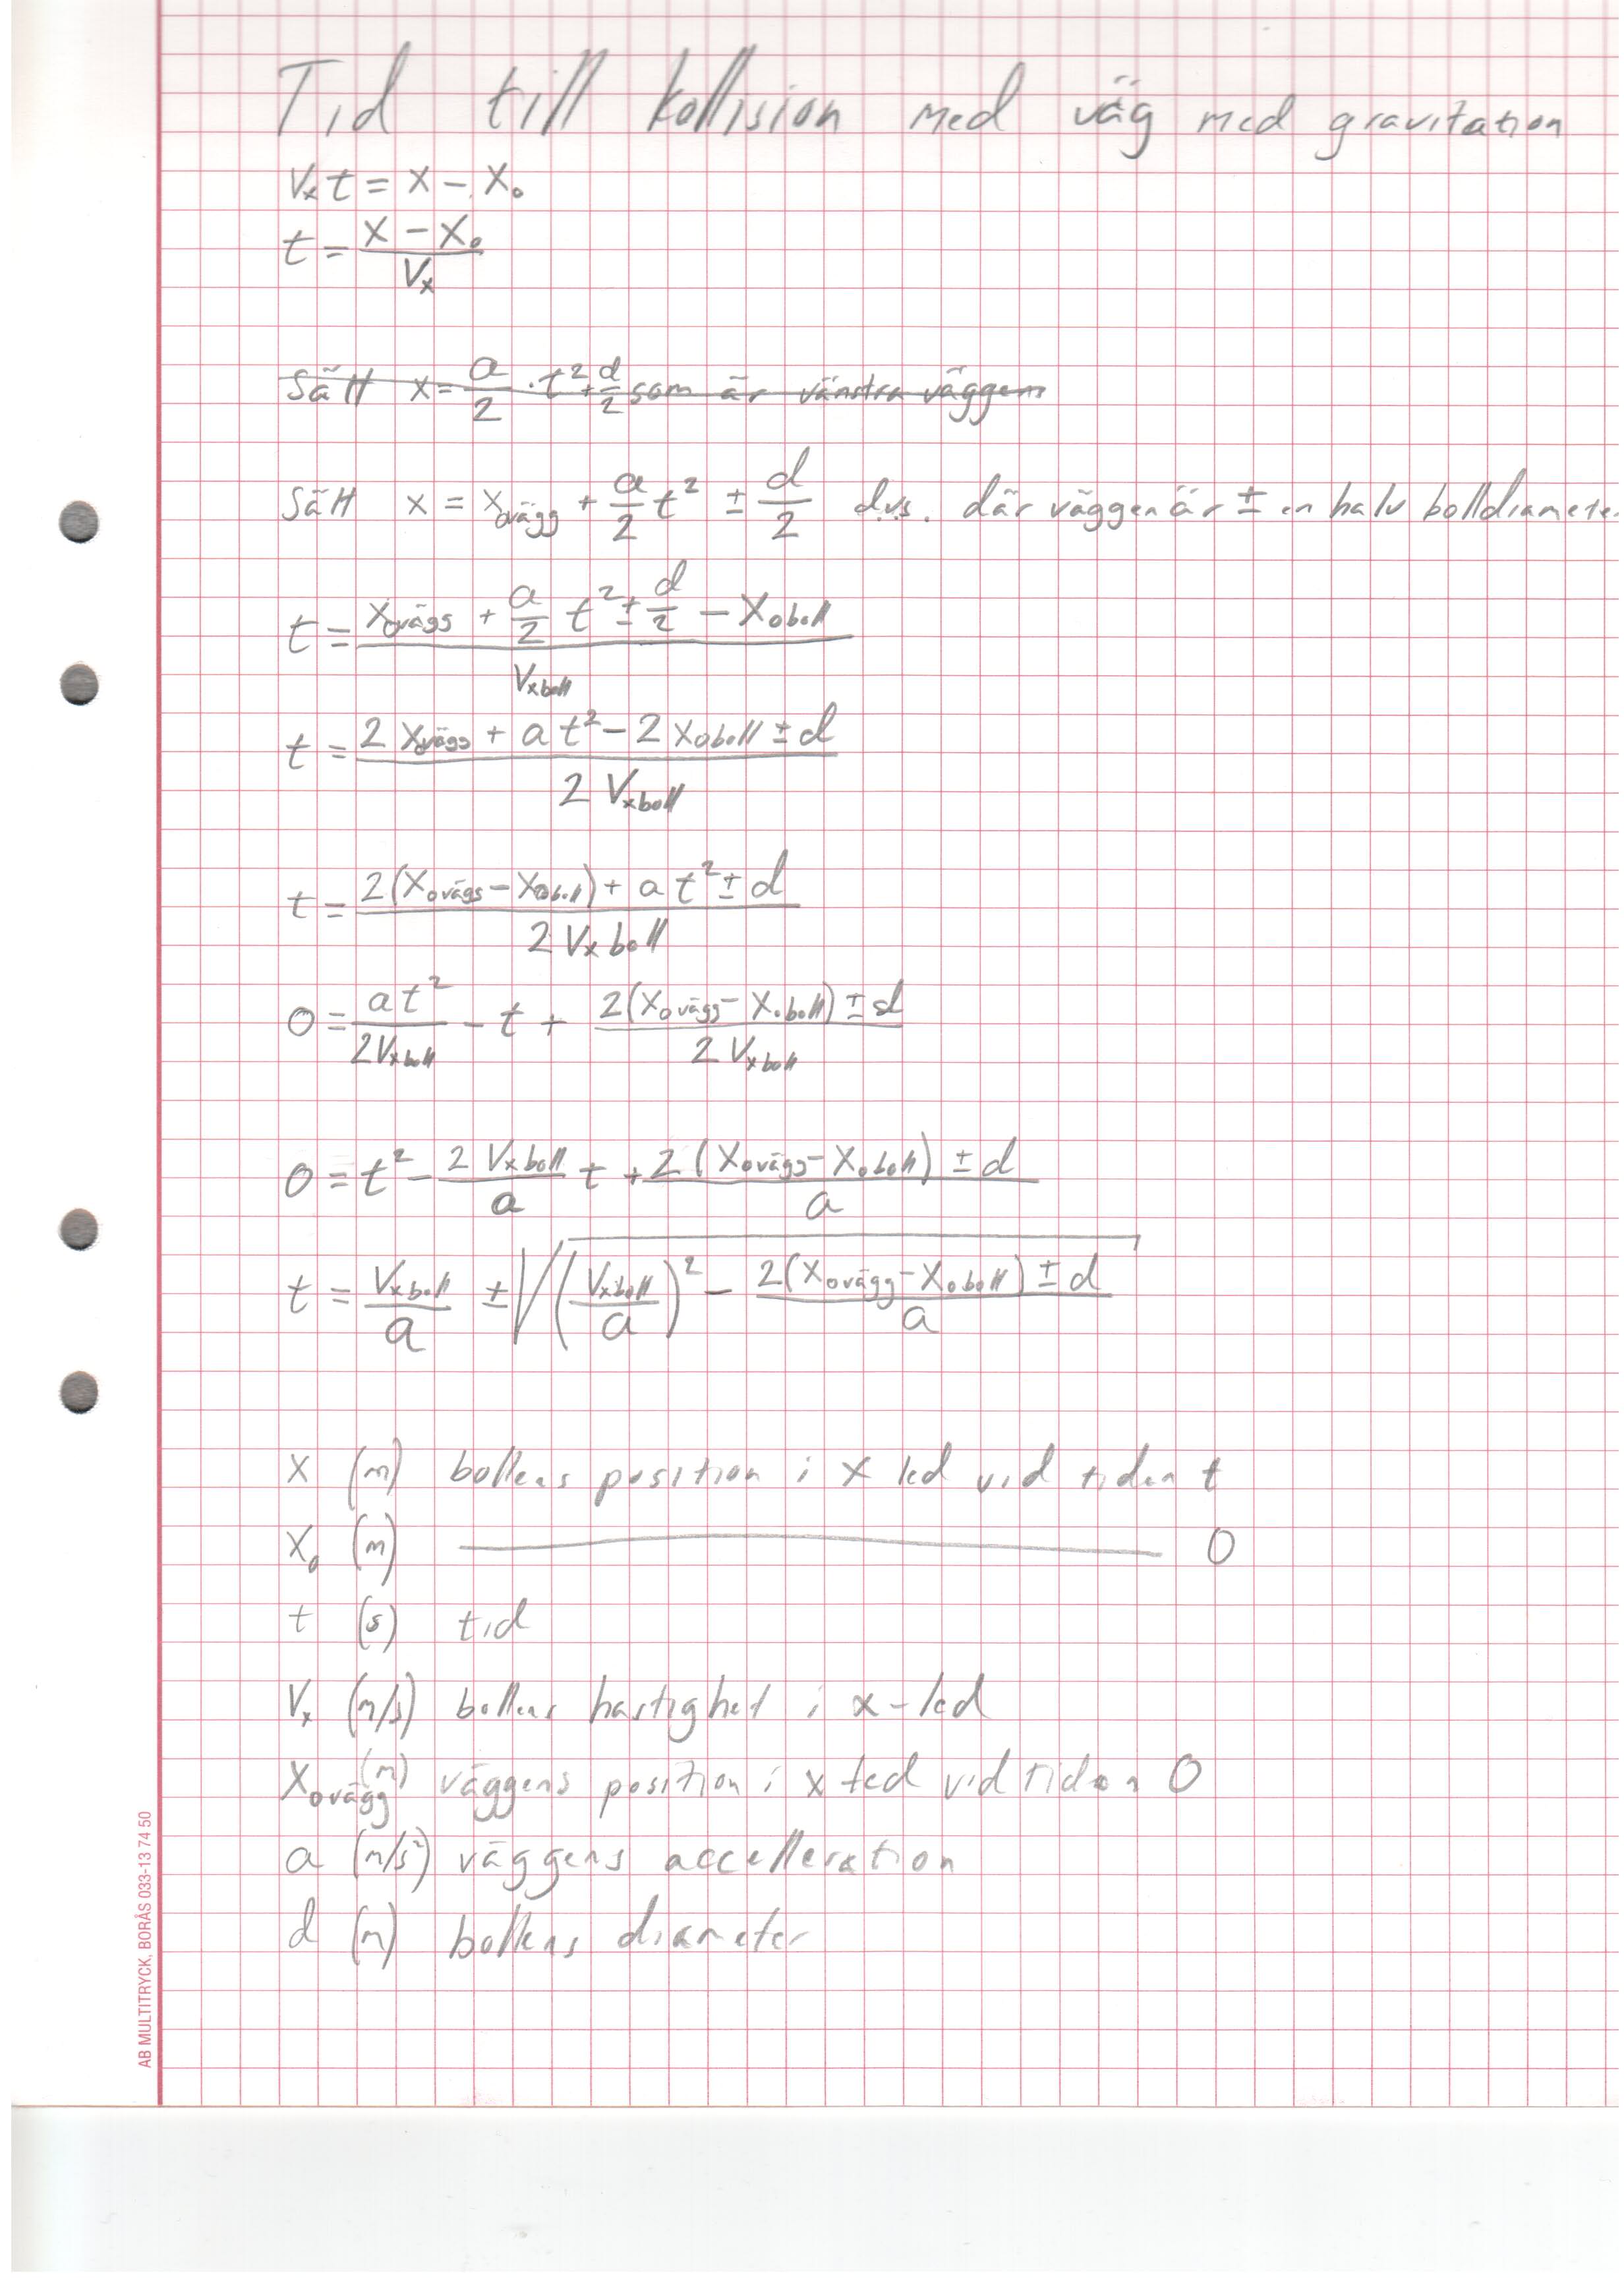 Tid till kollision med väg med gravitation
Vₓt = x - x₀
t = (x - x₀)/Vₓ
Sätt x = a/2 · t² + d/2 som är vänstra väggen
Sätt x = x₀vägg + a/2 t² ± d/2 d.v.s. där väggen är ± en halv bolldiameter
t = (x₀vägg + a/2 t² ± d/2 - x₀boll)/Vₓboll
t = (2x₀vägg + at² - 2x₀boll ± d)/(2Vₓboll)
t = (2(x₀vägg - x₀boll) + at² ± d)/(2Vₓboll)
0 = at²/(2Vₓboll) - t + (2(x₀vägg - x₀boll) ± d)/(2Vₓboll)
0 = t² - (2Vₓboll/a) t + (2(x₀vägg - x₀boll) ± d)/a
t = Vₓboll/a ± √((Vₓboll/a)² - (2(x₀vägg - x₀boll) ± d)/a)
x (m) bollens position i x led vid tiden t
x₀ (m) ———— 0
t (s) tid
Vₓ (m/s) bollens hastighet i x-led
x₀vägg (m) väggens position i x led vid tiden 0
a (m/s²) väggens accelleration
d (m) bollens diameter
AB MULTITRYCK, BORÅS 033-13 74 50